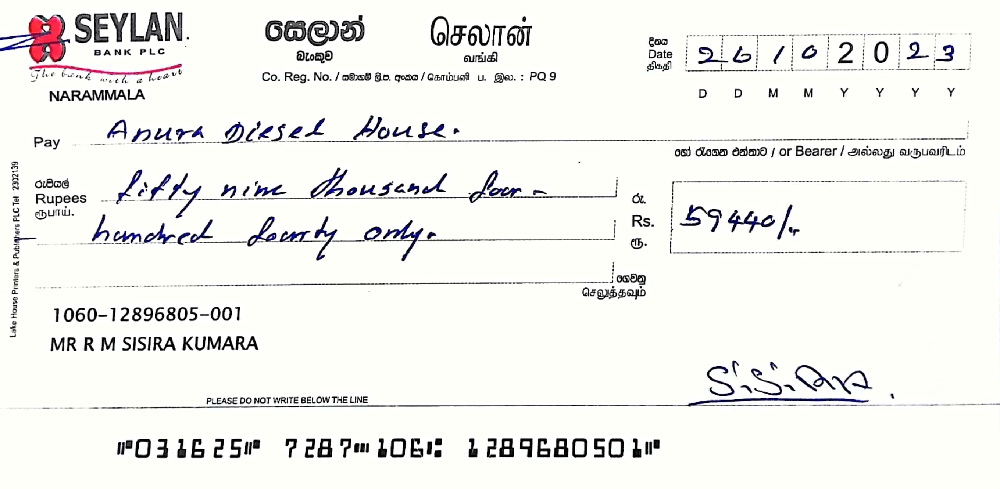 SEYLAN
BANK PLC
The bank with a heart
NARAMMALA
සෙලාන් செலான்
බැංකුව வங்கி
Co. Reg. No. / සමාගම් ලි.ප. අංකය / கொம்பனி ப. இல. : PQ 9
දිනය
Date 26 10 2023
திகதி
D D M M Y Y Y Y
Pay Anura Diesel House.
හෝ රැගෙන එන්නාට / or Bearer / அல்லது வருபவரிடம்
රුපියල්
Rupees fifty nine thousand four -
ரூபாய். hundred fourty only.
රු.
Rs. 59440/-
ரூ.
ගෙවනු
செலுத்தவும்
Lake House Printers & Publishers PLC Tel 2302139
1060-12896805-001
MR R M SISIRA KUMARA
PLEASE DO NOT WRITE BELOW THE LINE
⑈031625⑈ 7287⑉106⑆ 1289680501⑈